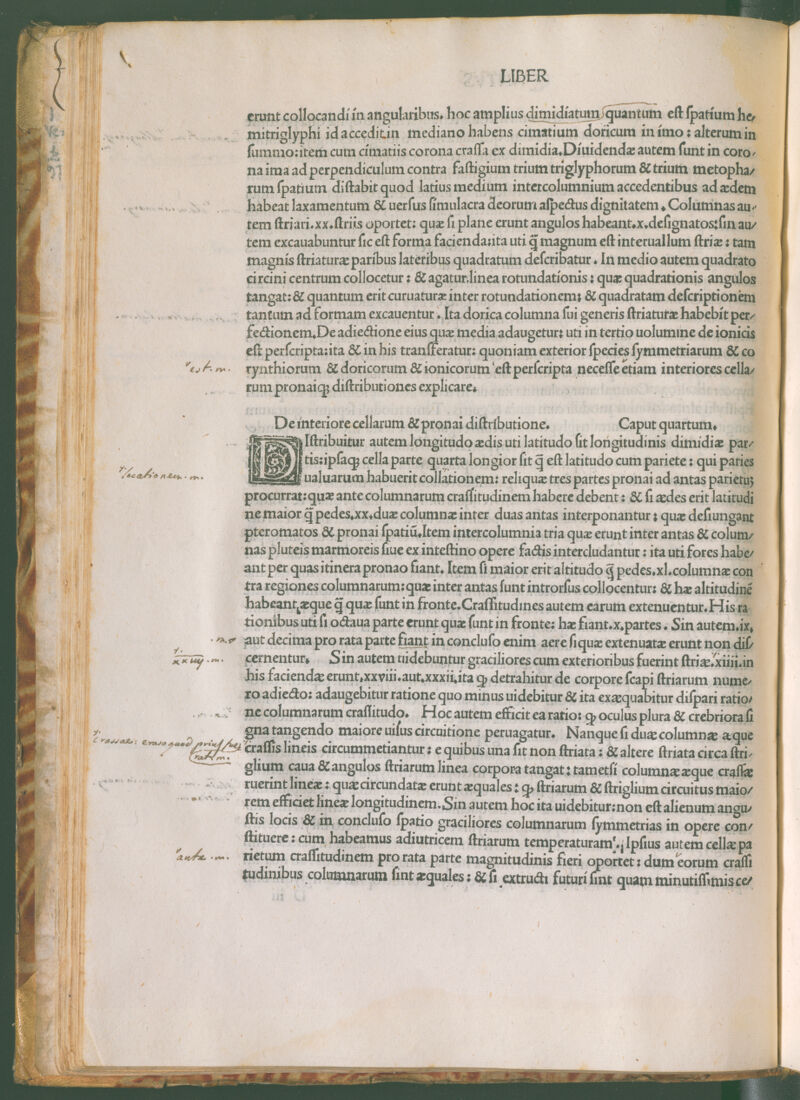 LIBER
erunt collocandi in angularibus. hoc amplius dimidiatum quantum est spatium he/
mitriglyphi id accedit.in mediano habens cimatium doricum in imo: alterum in
summo:item cum cimatiis corona crassa ex dimidia.Diuidendæ autem sunt in coro/
na ima ad perpendiculum contra fastigium trium triglyphorum & trium metopha/
rum spatium distabit quod latius medium intercolumnium accedentibus ad ædem
habeat laxamentum & uersus simulacra deorum aspectus dignitatem. Columnas au/
tem striari.xx.striis oportet: quæ si plane erunt angulos habeant.x.designatos:sin au/
tem excauabuntur sic est forma facienda:ita uti q̃ magnum est interuallum striæ: tam
magnis striaturæ paribus lateribus quadratum describatur. In medio autem quadrato
circini centrum collocetur: & agatur.linea rotundationis: quæ quadrationis angulos
tangat:& quantum erit curuaturæ inter rotundationem: & quadratam descriptionem
tantum ad formam excauentur. Ita dorica columna sui generis striaturæ habebit per/
fectionem.De adiectione eius quæ media adaugetur: uti in tertio uolumine de ionicis
est perscripta:ita & in his transferatur: quoniam exterior species symmetriarum & co
rynthiorum & doricorum & ionicorum est perscripta necesse etiam interiores cella/
est. m.
rum pronaiq; distributiones explicare.
De interiore cellarum & pronai distributione. Caput quartum.
DIstribuitur autem longitudo ædis uti latitudo sit longitudinis dimidiæ par/
tis:ipsaq; cella parte quarta longior sit q̃ est latitudo cum pariete: qui paries
ualuarum habuerit collationem: reliquæ tres partes pronai ad antas parietu;
locationem. m.
procurrat:quæ ante columnarum crassitudinem habere debent: & si ædes erit latitudi
ne maior q̃ pedes.xx.duæ columnæ inter duas antas interponantur: quæ defiungant
pteromatos & pronai spatiũ.Item intercolumnia tria quæ erunt inter antas & colum/
nas pluteis marmoreis siue ex intestino opere factis intercludantur: ita uti fores habe/
ant per quas itinera pronao fiant. Item si maior erit altitudo q̃ pedes.xl.columnæ con
tra regiones columnarum:quæ inter antas sunt introrsus collocentur: & hæ altitudinē
habeant,æque q̃ quæ sunt in fronte.Crassitudines autem earum extenuentur.His ra
tionibus uti si octaua parte erunt quæ sunt in fronte: hæ fiant.x.partes. Sin autem.ix.
aut decima pro rata parte fiant in concluso enim aere siquæ extenuatæ erunt non dis/
cernentur. Sin autem uidebuntur graciliores cum exterioribus fuerint striæ.xiiii.in
xxiiij. m.
his faciendæ erunt.xxviii.aut.xxxii.ita ꝙ detrahitur de corpore scapi striarum nume/
ro adiecto: adaugebitur ratione quo minus uidebitur & ita exæquabitur dispari ratio/
ne columnarum crassitudo. Hoc autem efficit ea ratio: ꝙ oculus plura & crebriora si
gna tangendo maiore uisus circuitione peruagatur. Nanque si duæ columnæ æque
crassis lineis circummetiantur: e quibus una sit non striata: & altere striata circa stri/
glium caua & angulos striarum linea corpora tangat: tametsi columnæ æque crassæ
ruerint lineæ: quæ circundatæ erunt æquales: ꝙ striarum & striglium circuitus maio/
rem efficiet lineæ longitudinem.Sin autem hoc ita uidebitur:non est alienum angu/
stis locis & in concluso spatio graciliores columnarum symmetrias in opere con/
stituere: cum habeamus adiutricem striarum temperaturam. Ipsius autem cellæ pa
rietum crassitudinem pro rata parte magnitudinis fieri oportet: dum eorum crassi
antæ. m.
tudinibus columnarum sint æquales: & si extructi futuri sint quam minutissimis ce/